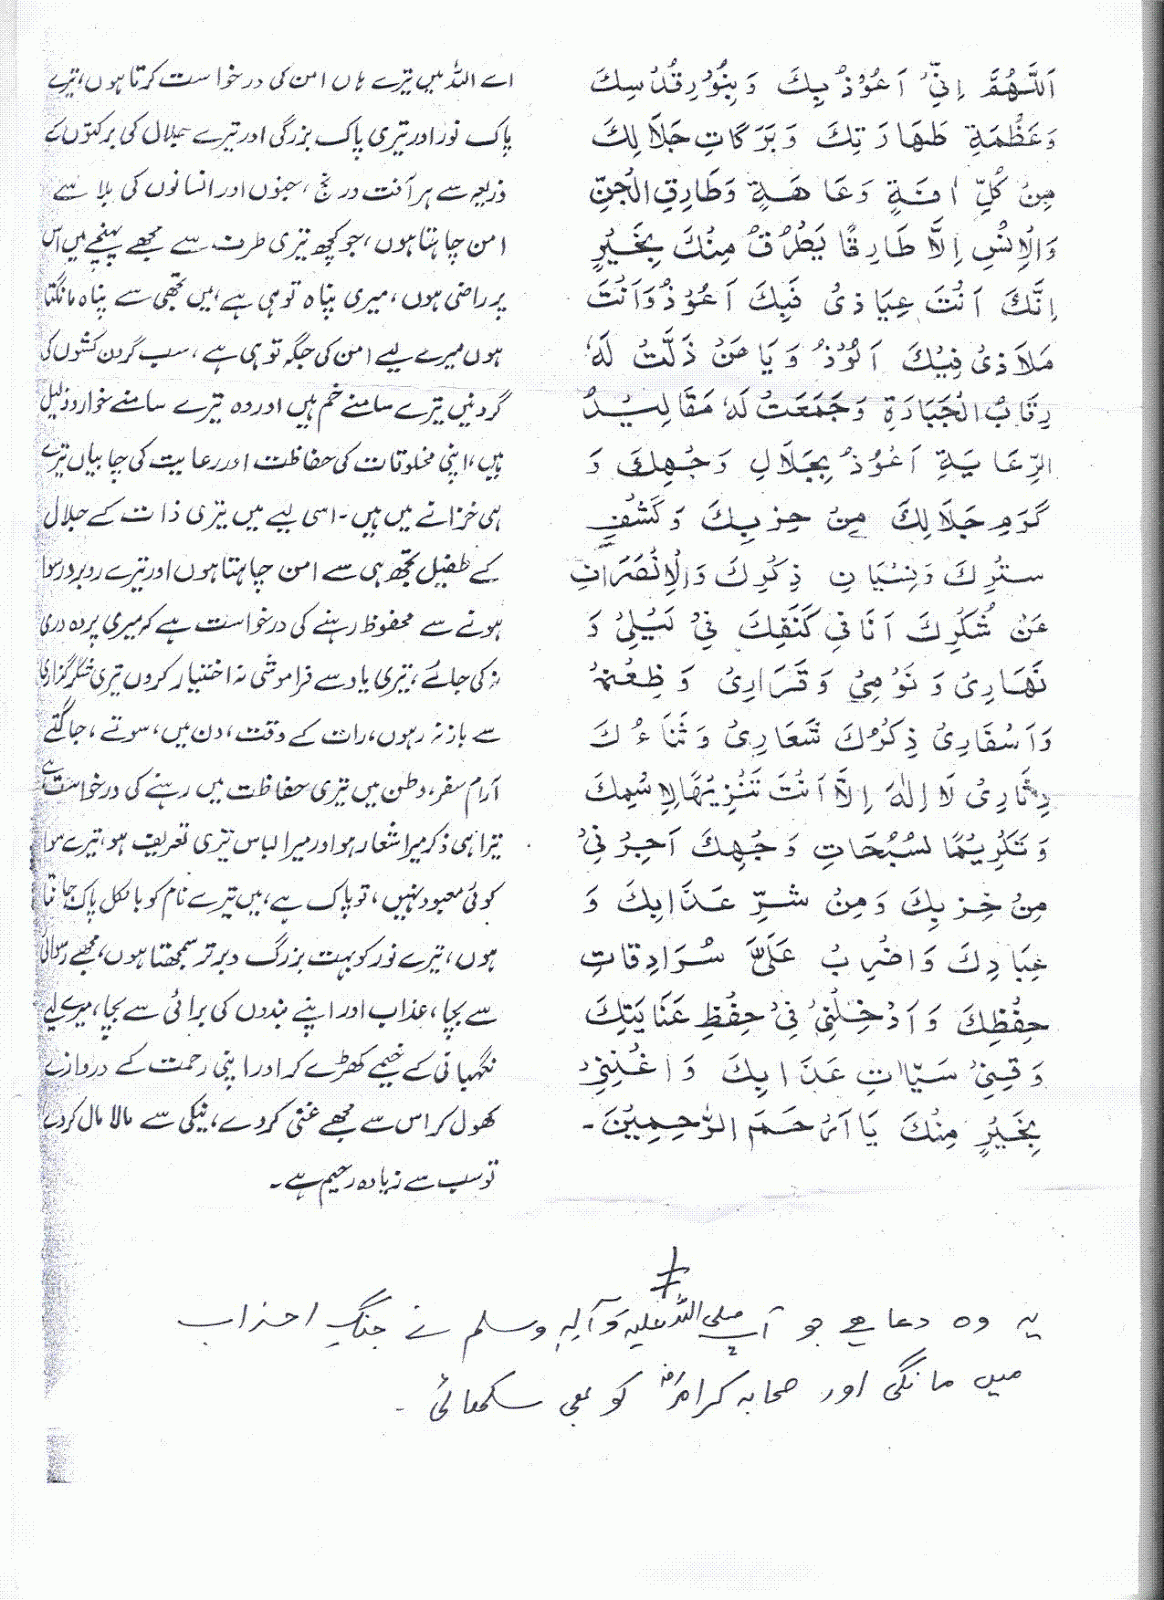 اَللّٰهُمَّ اِنِّیْ اَعُوْذُ بِكَ وَ بِنُوْرِ قُدُ سِكَ
وَعَظْمَةِ طَهَارَتِكَ وَ بَرَكَاتِ جَلَالِكَ
مِنْ كُلِّ اٰفَةٍ وَعَاهَةٍ وَطَارِقِ الْجِنِّ
وَالْاِنْسِ اِلَّا طَارِقًا يَطْرُقُ مِنْكَ بِخَيْرٍ
اِنَّكَ اَنْتَ عِيَاذِیْ فَبِكَ اَعُوْذُ وَاَنْتَ
مَلَاذِیْ فَبِكَ اَلُوْذُ وَ يَا مَنْ ذَلَّتْ لَهٗ
رِقَابُ الْجَبَابَرَةِ وَجَمَعَتْ لَهٗ مَقَالِيْدُ
الرِّعَايَةِ اَعُوْذُ بِجَلَالِ وَجْهِكَ وَ
كَرَمِ جَلَالِكَ مِنْ خِزْيِكَ وَكَشْفِ
سِتْرِكَ وَنِسْيَانِ ذِكْرِكَ وَالْاِنْصَرَافِ
عَنْ شُكْرِكَ اَنَا فِیْ كَنَفِكَ فِیْ لَيْلِیْ وَ
نَهَارِیْ وَ نَوْمِیْ وَ قَرَارِیْ وَ ظَعْنِیْ
وَاَسْفَارِیْ ذِكْرُكَ شَعَارِیْ وَ ثَنَاءُكَ
دِثَارِیْ لَا اِلٰهَ اِلَّا اَنْتَ تَنْزِيْهًا لِاسْمِكَ
وَ تَكْرِيْمًا لسُبُحَاتِ وَجْهِكَ اَجِرْنِیْ
مِنْ خِزْيِكَ وَمِنْ شَرِّ عَذَابِكَ وَ
عِبَادِكَ وَاضْرِبْ عَلَیَّ سُرَادِقَاتِ
حِفْظِكَ وَ اَدْخِلْنِیْ فِیْ حِفْظِ عَنَايَتِكَ
وَ قِنِیْ سَيِّاٰتِ عَذَابِكَ وَ اغْنِنِیْ
بِخَيْرٍ مِنْكَ يَا اَرْحَمَ الرّٰحِمِيْنَ ۔
اے اللہ میں تیرے ہاں امن کی درخواست کرتا ہوں، تیرے
پاک نور اور تیری پاک بزرگی اور تیرے جلال کی برکتوں کے
ذریعہ سے ہر آفت و رنج، جنوں اور انسانوں کی بلا سے
امن چاہتا ہوں، جو کچھ تیری طرف سے مجھے پہنچے میں اس
پر راضی ہوں، میری پناہ تو ہی ہے، میں تجھی سے پناہ مانگتا
ہوں میرے لیے امن کی جگہ تو ہی ہے، سب گردن کشوں کی
گردنیں تیرے سامنے خم ہیں اور وہ تیرے سامنے خوار و ذلیل
ہیں، اپنی مخلوقات کی حفاظت اور رعایت کی چابیاں تیرے
ہی خزانے میں ہیں۔ اسی لیے میں تیری ذات کے جلال
کے طفیل تجھ ہی سے امن چاہتا ہوں اور تیرے روبرو رسوا
ہونے سے محفوظ رہنے کی درخواست ہے کہ میری پردہ دری
نہ کی جائے، تیری یاد سے فراموشی نہ اختیار کروں تیری شکر گزاری
سے باز نہ رہوں، رات کے وقت، دن میں، سوتے، جاگتے
آرام سفر، وطن میں تیری حفاظت میں رہنے کی درخواست ہے
تیرا ہی ذکر میرا شعار ہو اور میرا لباس تیری تعریف ہو، تیرے سوا
کوئی معبود نہیں، تو پاک ہے، میں تیرے نام کو بالکل پاک جانتا
ہوں، تیرے نور کو بہت بزرگ و برتر سمجھتا ہوں، مجھے رسوائی
سے بچا، عذاب اور اپنے بندوں کی برائی سے بچا، میرے لیے
نگہبانی کے خیمے کھڑے کر اور اپنی رحمت کے دروازے
کھول کر اس سے مجھے غنی کر دے، نیکی سے مالا مال کر دے
تو سب سے زیادہ رحیم ہے۔
یہ وہ دعا ہے جو آپ صلی اللہ علیہ وَآلِہٖ وسلم نے جنگِ احزاب
میں مانگی اور صحابہ کرامؓ کو بھی سکھائی ۔